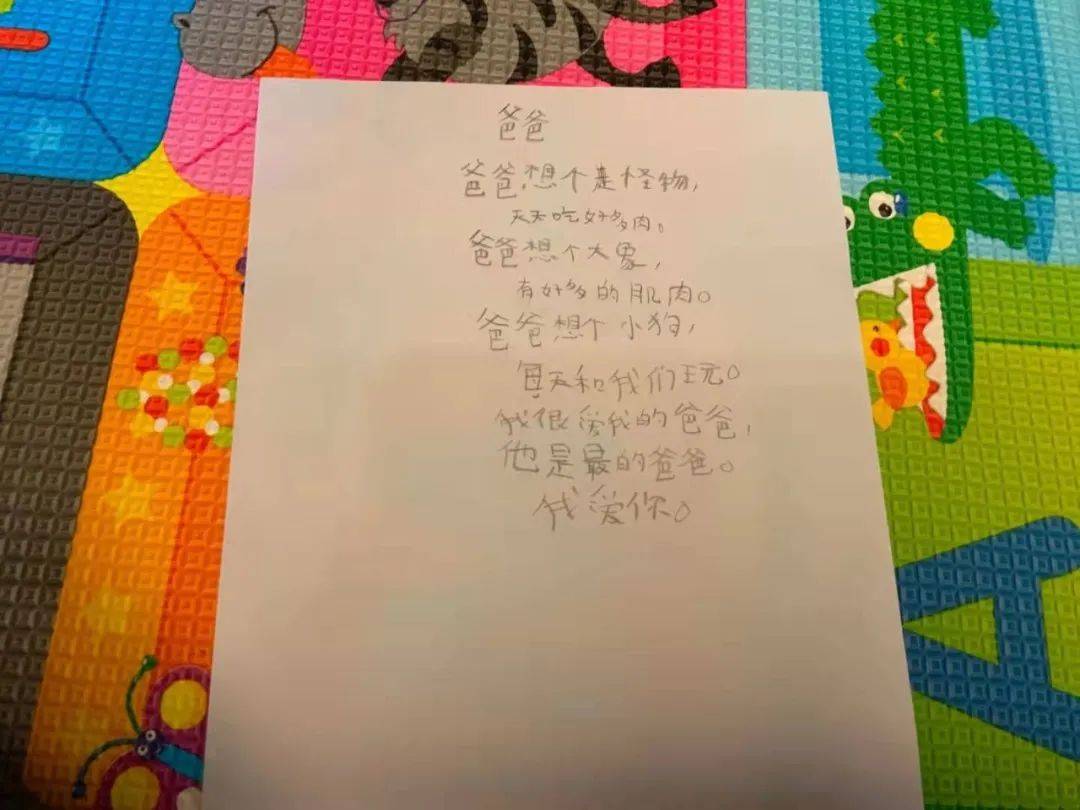 爸爸
爸爸想个是怪物，
天天吃好多肉。
爸爸想个大象，
有好多的肌肉。
爸爸想个小狗，
每天和我们玩。
我很爱我的爸爸，
他是最的爸爸。
我爱你。
A